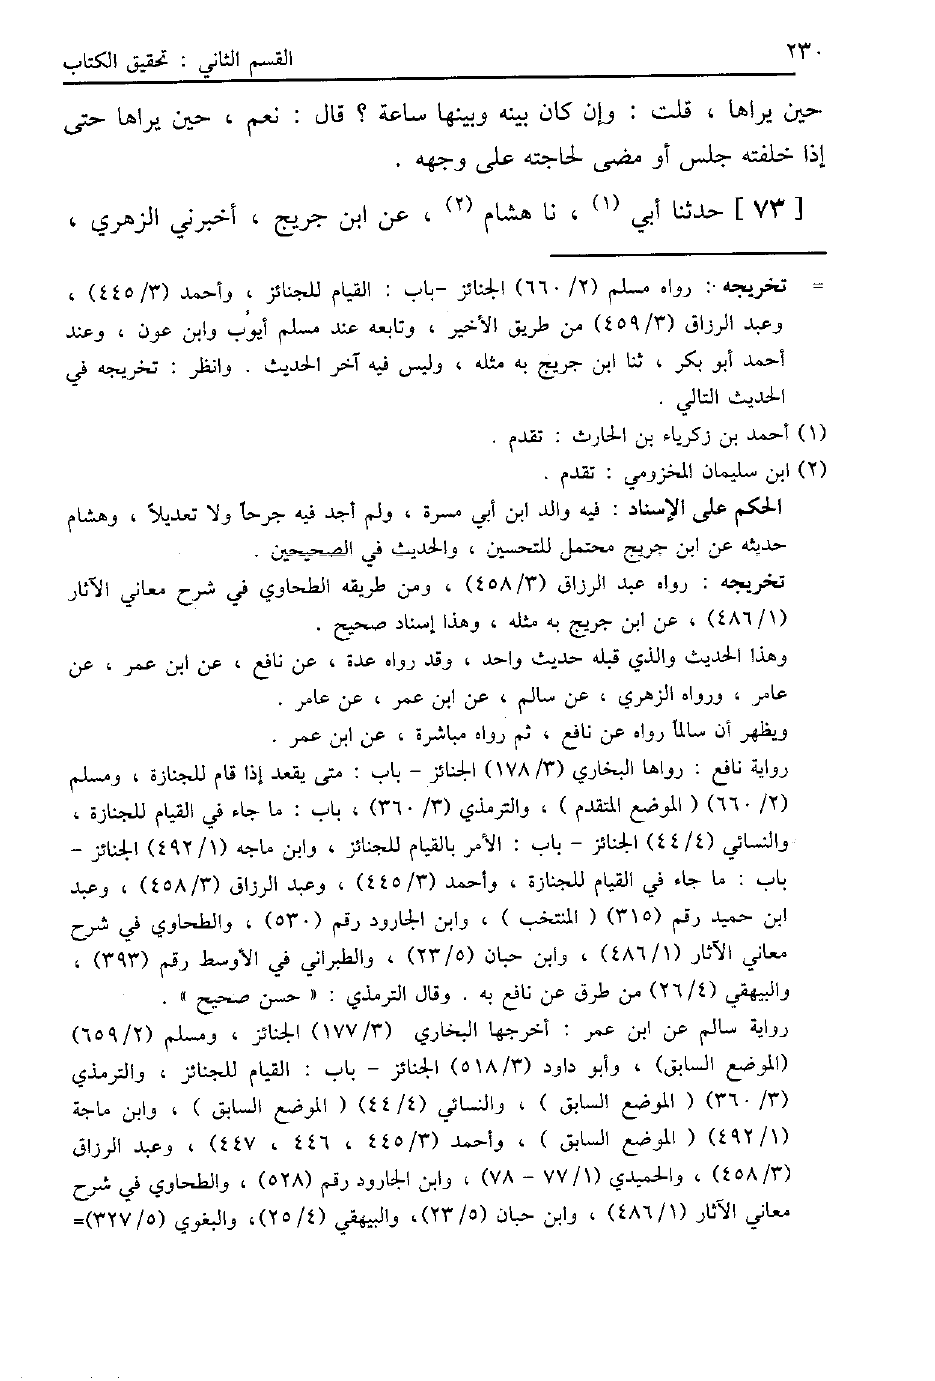 ٢٣٠
القسم الثاني : تحقيق الكتاب
حين يراها ، قلت : وإن كان بينه وبينها ساعة ؟ قال : نعم ، حين يراها حتى
إذا خلفته جلس أو مضى لحاجته على وجهه .
[ ٧٣ ] حدثنا أبي (١) ، نا هشام (٢) ، عن ابن جريج ، أخبرني الزهري ،
= تخريجه : رواه مسلم (٦٦٠/٢) الجنائز -باب : القيام للجنائز ، وأحمد (٤٤٥/٣) ،
وعبد الرزاق (٤٥٩/٣) من طريق الأخير ، وتابعه عند مسلم أيوب وابن عون ، وعند
أحمد أبو بكر ، ثنا ابن جريج به مثله ، وليس فيه آخر الحديث . وانظر : تخريجه في
الحديث التالي .
(١) أحمد بن زكرياء بن الحارث : تقدم .
(٢) ابن سليمان المخزومي : تقدم .
الحكم على الإسناد : فيه والد ابن أبي مسرة ، ولم أجد فيه جرحاً ولا تعديلاً ، وهشام
حديثه عن ابن جريج محتمل للتحسين ، والحديث في الصحيحين .
تخريجه : رواه عبد الرزاق (٤٥٨/٣) ، ومن طريقه الطحاوي في شرح معاني الآثار
(٤٨٦/١) ، عن ابن جريج به مثله ، وهذا إسناد صحيح .
وهذا الحديث والذي قبله حديث واحد ، وقد رواه عدة ، عن نافع ، عن ابن عمر ، عن
عامر ، ورواه الزهري ، عن سالم ، عن ابن عمر ، عن عامر .
ويظهر أن سالماً رواه عن نافع ، ثم رواه مباشرة ، عن ابن عمر .
رواية نافع : رواها البخاري (١٧٨/٣) الجنائز - باب : متى يقعد إذا قام للجنازة ، ومسلم
(٦٦٠/٢) ( الموضع المتقدم ) ، والترمذي (٣٦٠/٣) ، باب : ما جاء في القيام للجنازة ،
والنسائي (٤٤/٤) الجنائز - باب : الأمر بالقيام للجنائز ، وابن ماجه (٤٩٢/١) الجنائز -
باب : ما جاء في القيام للجنازة ، وأحمد (٤٤٥/٣) ، وعبد الرزاق (٤٥٨/٣) ، وعبد
ابن حميد رقم (٣١٥) ( المنتخب ) ، وابن الجارود رقم (٥٣٠) ، والطحاوي في شرح
معاني الآثار (٤٨٦/١) ، وابن حبان (٢٣/٥) ، والطبراني في الأوسط رقم (٣٩٣) ،
والبيهقي (٢٦/٤) من طرق عن نافع به . وقال الترمذي : « حسن صحيح » .
رواية سالم عن ابن عمر : أخرجها البخاري (١٧٧/٣) الجنائز ، ومسلم (٦٥٩/٢)
(الموضع السابق) ، وأبو داود (٥١٨/٣) الجنائز - باب : القيام للجنائز ، والترمذي
(٣٦٠/٣) ( الموضع السابق ) ، والنسائي (٤٤/٤) ( الموضع السابق ) ، وابن ماجة
(٤٩٢/١) ( الموضع السابق ) ، وأحمد (٤٤٥/٣ ، ٤٤٦ ، ٤٤٧) ، وعبد الرزاق
(٤٥٨/٣) ، والحميدي (٧٧/١ - ٧٨) ، وابن الجارود رقم (٥٢٨) ، والطحاوي في شرح
معاني الآثار (٤٨٦/١) ، وابن حبان (٢٣/٥)، والبيهقي (٢٥/٤)، والبغوي (٣٢٧/٥)=